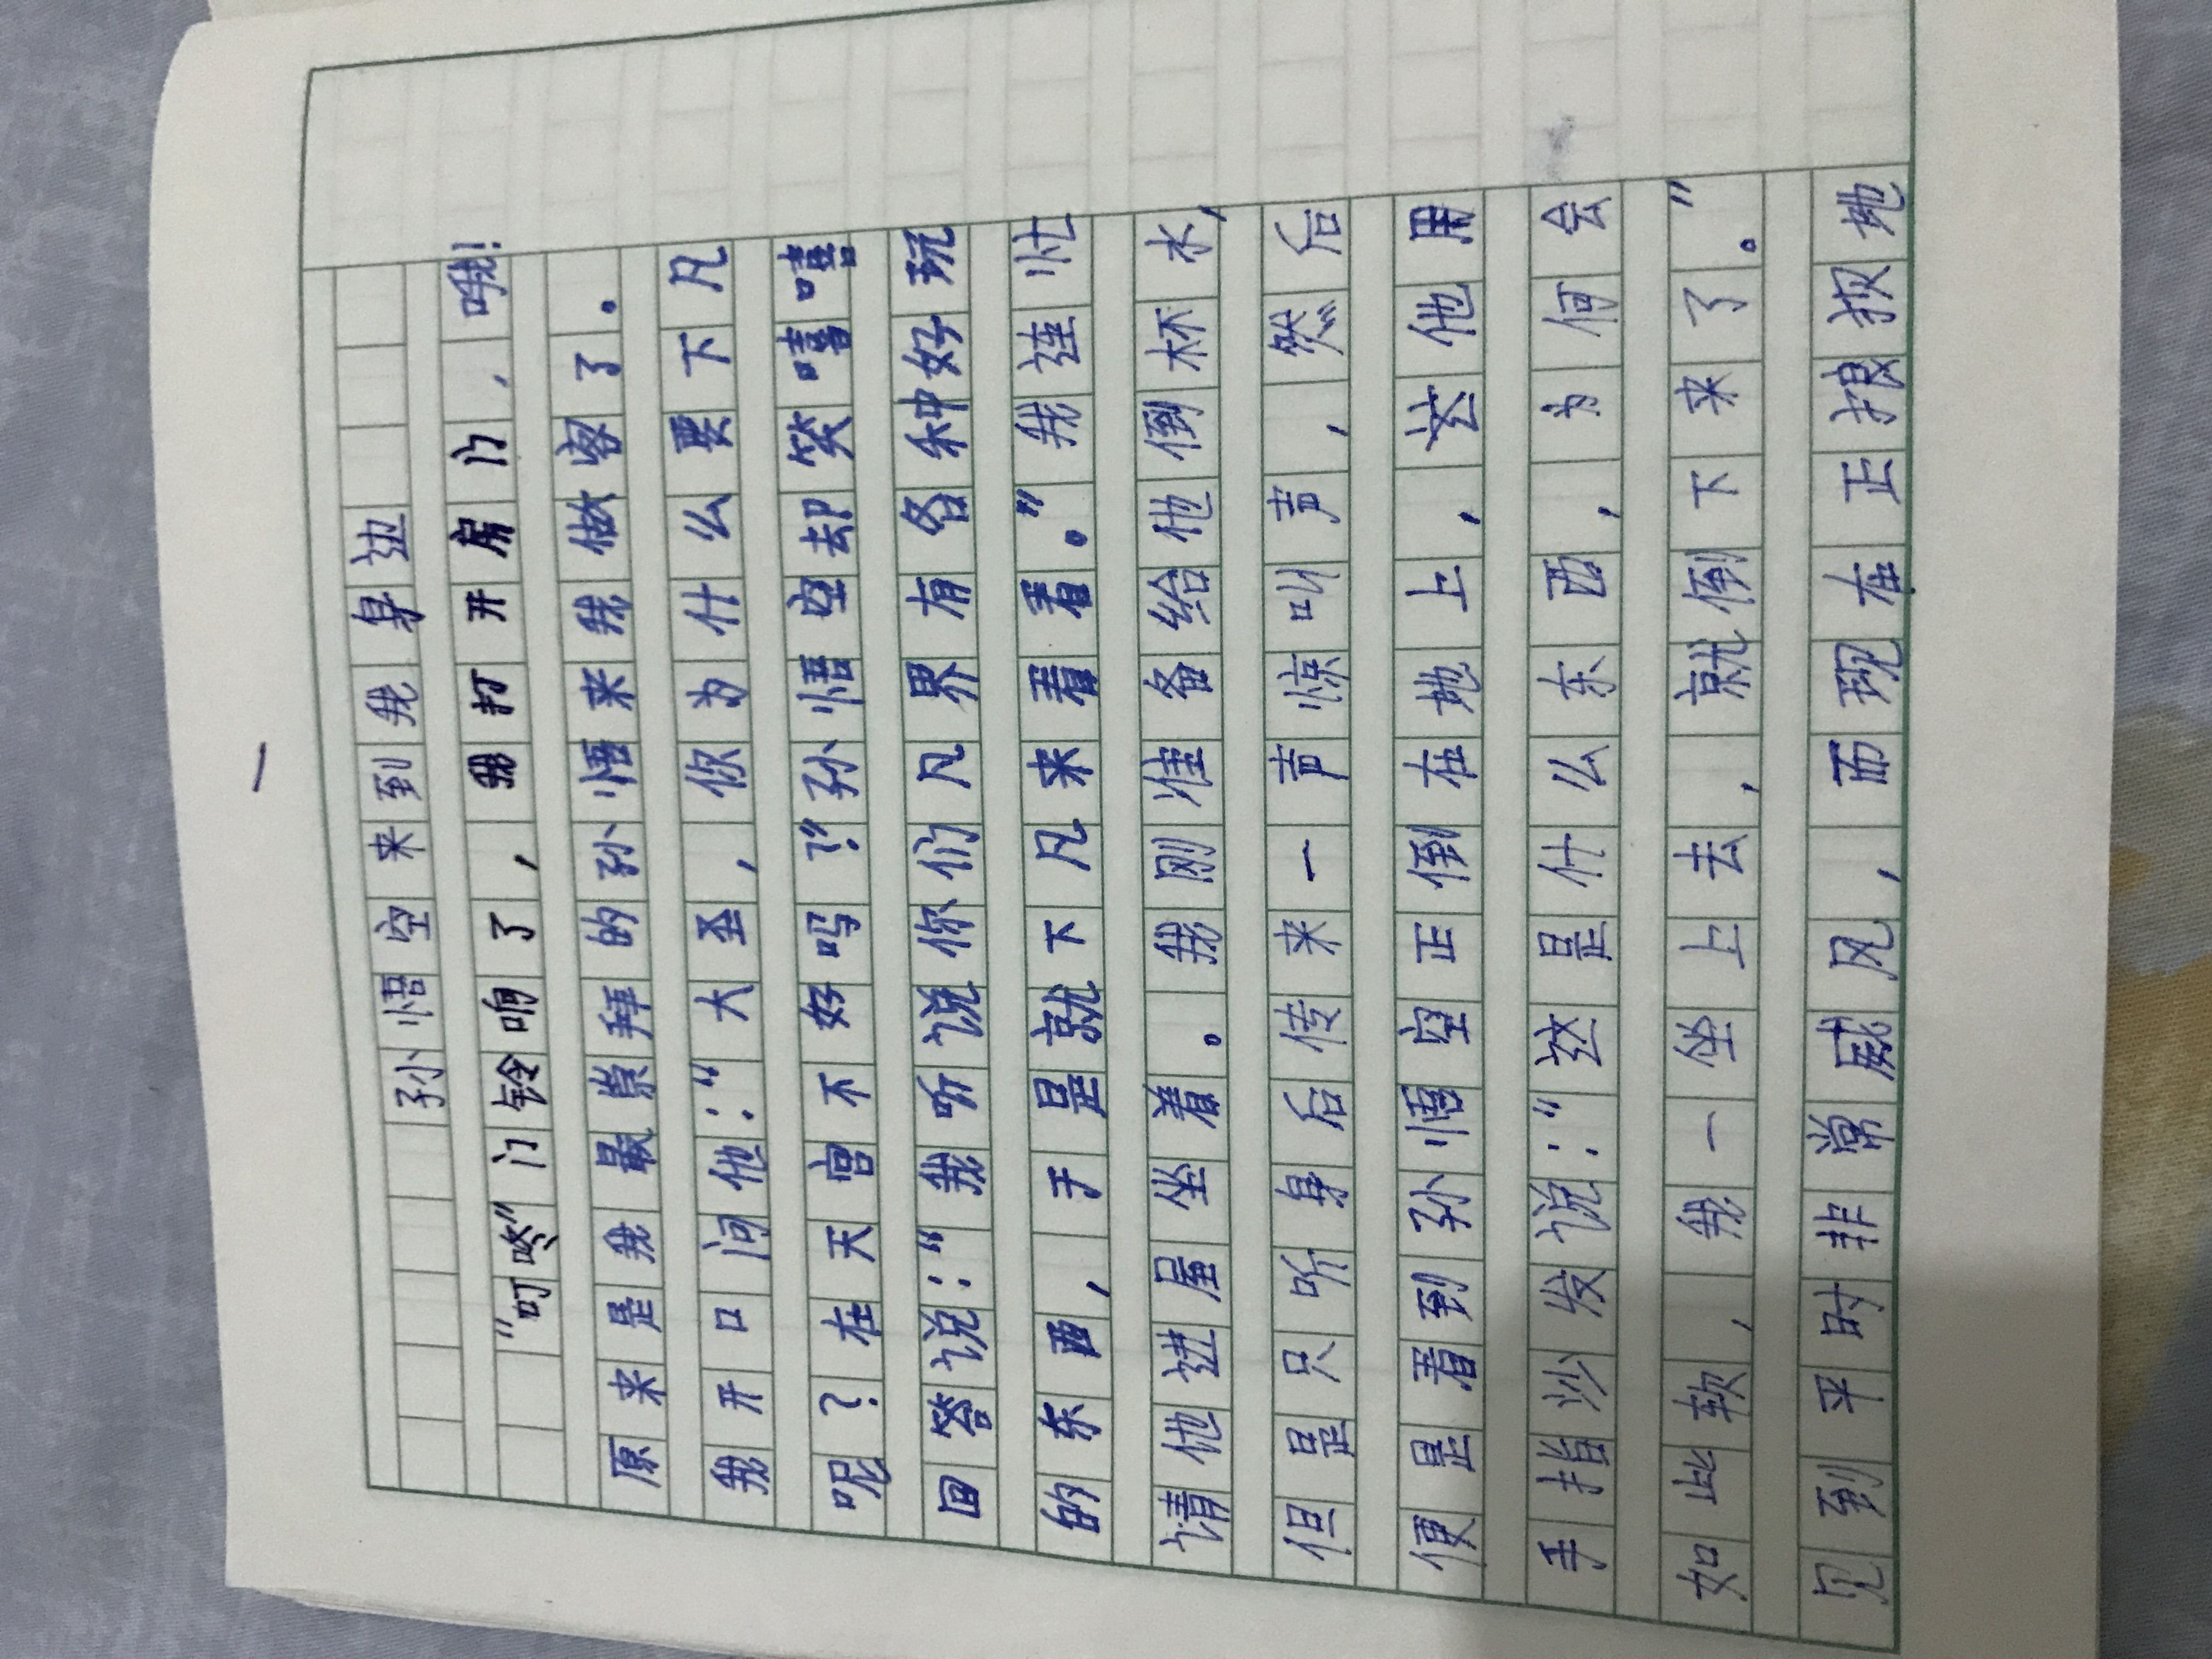 一
孙悟空来到我身边
"叮咚"门铃响了,我打开房门,哦!
原来是我最崇拜的孙悟来我做客了。
我开口问他:"大圣,你为什么要下凡
呢?在天宫不好吗?"孙悟空却笑嘻嘻
回答说:"我听说你们凡界有各种好玩
的东西,于是就下凡来看看。"我连忙
请他进屋坐着。我刚准备给他倒杯水,
但是只听身后传来一声惊叫声,然后
便是看到孙悟空正倒在地上,这他用
手指沙发说:"这是什么东西,为何会
如此软,我一坐上去,就倒下来了。"
见到平时非常威风,而现在正狼狈地